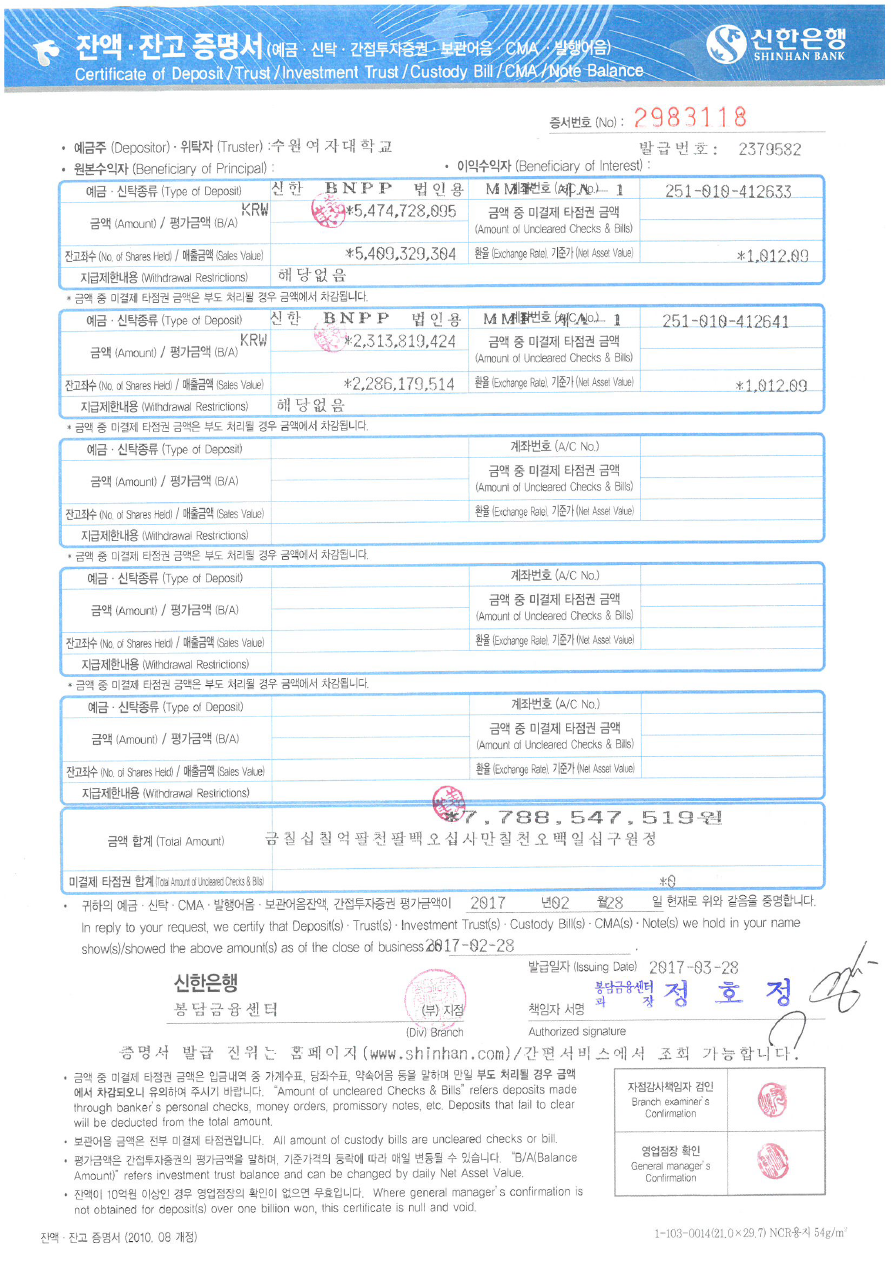 잔액·잔고 증명서 (예금·신탁·간접투자증권·보관어음·CMA·발행어음)
Certificate of Deposit/Trust/Investment Trust/Custody Bill/CMA/Note Balance
신한은행
SHINHAN BANK
증서번호 (No) : 2983118
• 예금주 (Depositor)·위탁자 (Truster) :수원여자대학교
발급번호: 2379582
• 원본수익자 (Beneficiary of Principal) :
• 이익수익자 (Beneficiary of Interest) :
예금·신탁종류 (Type of Deposit) 신한 BNPP 법인용 251-010-412633
금액 (Amount) / 평가금액 (B/A) KRW *5,474,728,095 금액 중 미결제 타점권 금액
(Amount of Uncleared Checks & Bills)
잔고좌수 (No. of Shares Held) / 매출금액 (Sales Value) *5,409,329,304 환율 (Exchange Rate), 기준가 (Net Asset Value) *1,012.09
지급제한내용 (Withdrawal Restrictions) 해당없음
* 금액 중 미결제 타점권 금액은 부도 처리될 경우 금액에서 차감됩니다.
예금·신탁종류 (Type of Deposit) 신한 BNPP 법인용 251-010-412641
금액 (Amount) / 평가금액 (B/A) KRW *2,313,819,424 금액 중 미결제 타점권 금액
(Amount of Uncleared Checks & Bills)
잔고좌수 (No. of Shares Held) / 매출금액 (Sales Value) *2,286,179,514 환율 (Exchange Rate), 기준가 (Net Asset Value) *1,012.09
지급제한내용 (Withdrawal Restrictions) 해당없음
* 금액 중 미결제 타점권 금액은 부도 처리될 경우 금액에서 차감됩니다.
예금·신탁종류 (Type of Deposit) 계좌번호 (A/C No.)
금액 (Amount) / 평가금액 (B/A) 금액 중 미결제 타점권 금액
(Amount of Uncleared Checks & Bills)
잔고좌수 (No. of Shares Held) / 매출금액 (Sales Value) 환율 (Exchange Rate), 기준가 (Net Asset Value)
지급제한내용 (Withdrawal Restrictions)
* 금액 중 미결제 타점권 금액은 부도 처리될 경우 금액에서 차감됩니다.
예금·신탁종류 (Type of Deposit) 계좌번호 (A/C No.)
금액 (Amount) / 평가금액 (B/A) 금액 중 미결제 타점권 금액
(Amount of Uncleared Checks & Bills)
잔고좌수 (No. of Shares Held) / 매출금액 (Sales Value) 환율 (Exchange Rate), 기준가 (Net Asset Value)
지급제한내용 (Withdrawal Restrictions)
* 금액 중 미결제 타점권 금액은 부도 처리될 경우 금액에서 차감됩니다.
예금·신탁종류 (Type of Deposit) 계좌번호 (A/C No.)
금액 (Amount) / 평가금액 (B/A) 금액 중 미결제 타점권 금액
(Amount of Uncleared Checks & Bills)
잔고좌수 (No. of Shares Held) / 매출금액 (Sales Value) 환율 (Exchange Rate), 기준가 (Net Asset Value)
지급제한내용 (Withdrawal Restrictions)
*7,788,547,519원
금액 합계 (Total Amount) 금칠십칠억팔천팔백오십사만칠천오백일십구원정
미결제 타점권 합계 (Total Amount of Uncleared Checks & Bills) *0
• 귀하의 예금·신탁·CMA·발행어음·보관어음잔액, 간접투자증권 평가금액이 2017 년02 월28 일 현재로 위와 같음을 증명합니다.
In reply to your request, we certify that Deposit(s)·Trust(s)·Investment Trust(s)·Custody Bill(s)·CMA(s)·Note(s) we hold in your name
show(s)/showed the above amount(s) as of the close of business 2017-02-28 .
발급일자 (Issuing Date) 2017-03-28
신한은행
봉담금융센터
(부) 지점
(Div) Branch
봉담금융센터
과 장 정 호 정
책임자 서명
Authorized signature
증명서 발급 진위는 홈페이지(www.shinhan.com)/간편서비스에서 조회 가능합니다.
• 금액 중 미결제 타점권 금액은 입금내역 중 가계수표, 당좌수표, 약속어음 등을 말하며 만일 부도 처리될 경우 금액
에서 차감되오니 유의하여 주시기 바랍니다. "Amount of uncleared Checks & Bills" refers deposits made
through banker's personal checks, money orders, promissory notes, etc. Deposits that fail to clear
will be deducted from the total amount.
• 보관어음 금액은 전부 미결제 타점권입니다. All amount of custody bills are uncleared checks or bill.
• 평가금액은 간접투자증권의 평가금액을 말하며, 기준가격의 등락에 따라 매일 변동될 수 있습니다. "B/A(Balance
Amount)" refers investment trust balance and can be changed by daily Net Asset Value.
• 잔액이 10억원 이상인 경우 영업점장의 확인이 없으면 무효입니다. Where general manager's confirmation is
not obtained for deposit(s) over one billion won, this certificate is null and void.
자점감사책임자 검인
Branch examiner's
Confirmation
영업점장 확인
General manager's
Confirmation
잔액·잔고 증명서 (2010. 08 개정)
1-103-0014(21.0×29.7) NCR용지 54g/m²